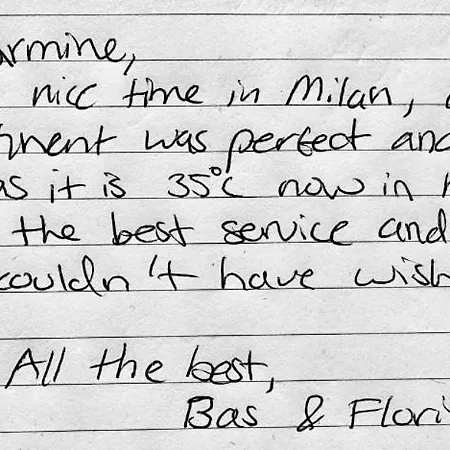 armine,
nice time in Milan,
tment was perfect and
as it is 35°C now in
the best service and
couldn't have wish
All the best,
Bas & Flori